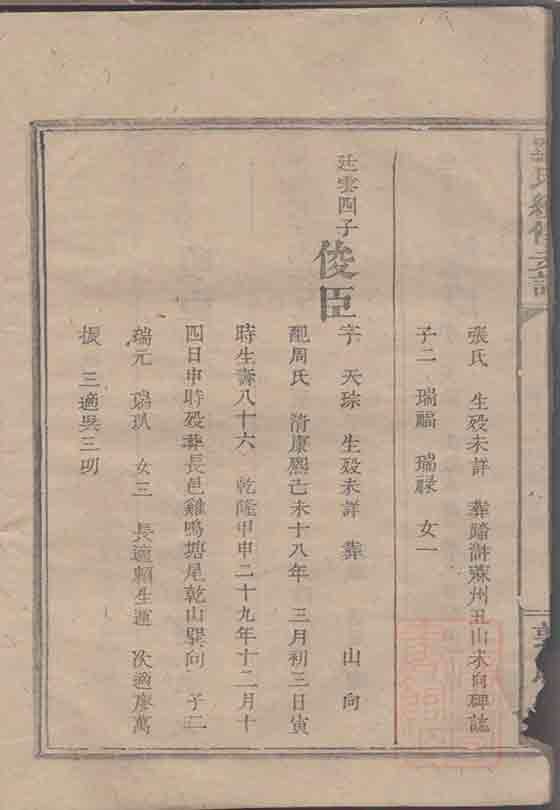 氏續修支譜
張氏 生歿未詳 葬 蘇州丑山未向碑誌
子二 瑞福 瑞祿 女一
廷雲四子
俊臣
字 天琮 生歿未詳 葬 山 向
配周氏 清康熙己未十八年 三月初三日寅
時生壽八十六 乾隆甲申二十九年十二月十
四日申時歿葬長邑雞鳴塘尾乾山巽向 子二
瑞元 瑞玖 女三 長適賴生運 次適廖萬
振 三適吳三明